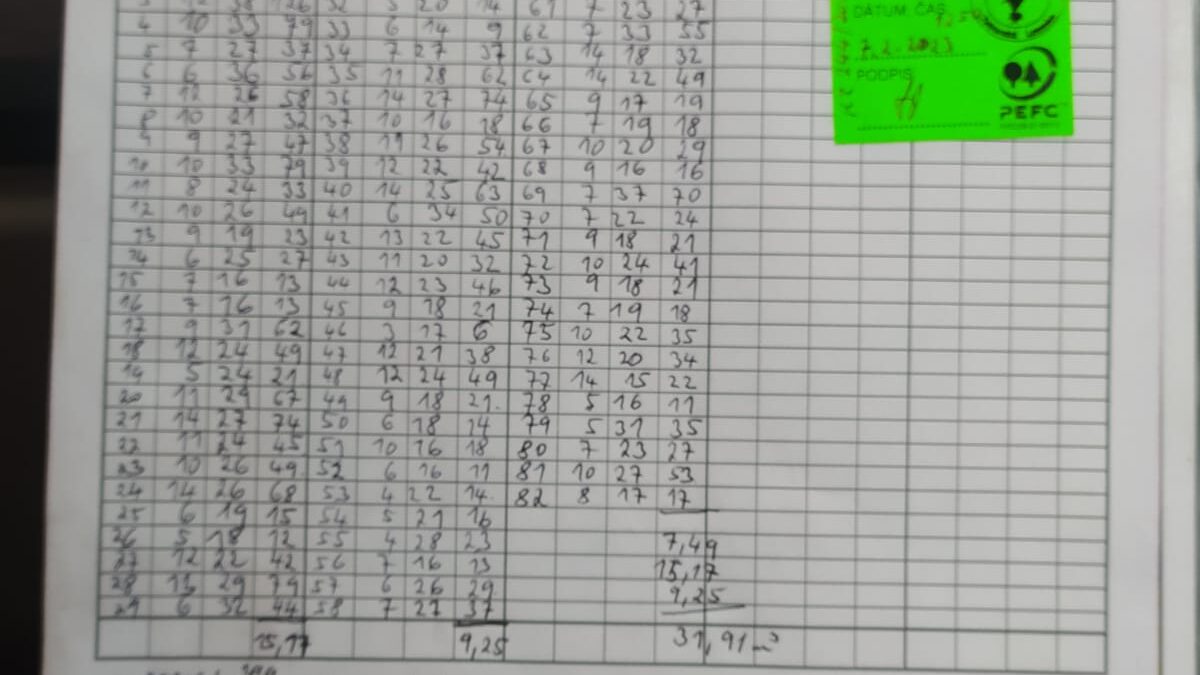 3 12 38 126 32 5 20 14 61 7 23 27
4 10 33 79 33 6 14 9 62 7 33 55
5 7 27 37 34 7 27 37 63 14 18 32
6 6 36 56 35 11 28 62 64 14 22 49
7 12 26 58 36 14 27 74 65 9 17 19
8 10 21 32 37 10 16 18 66 7 19 18
9 9 27 47 38 11 26 54 67 10 20 29
10 10 33 79 39 12 22 42 68 9 16 16
11 8 24 33 40 14 25 63 69 7 37 70
12 10 26 49 41 6 34 50 70 7 22 24
13 9 19 23 42 13 22 45 71 9 18 21
14 6 25 27 43 11 20 32 72 10 24 41
15 7 16 13 44 12 23 46 73 9 18 21
16 7 16 13 45 9 18 21 74 7 19 18
17 9 31 62 46 3 17 6 75 10 22 35
18 12 24 49 47 12 21 38 76 12 20 34
19 5 24 21 48 12 24 49 77 14 15 22
20 11 29 67 49 9 18 21. 78 5 16 11
21 14 27 74 50 6 18 14 79 5 31 35
22 11 24 45 51 10 16 18 80 7 23 27
23 10 26 49 52 6 16 11 81 10 27 53
24 14 26 68 53 4 22 14. 82 8 17 17
25 6 19 15 54 5 21 16
26 5 18 12 55 4 28 23 7,49
27 12 22 42 56 7 16 13 15,17
28 13 29 79 57 6 26 29 9,25
29 6 32 44 58 7 27 37
15,17 9,25 31,91 m³
DÁTUM, ČAS
7.2.2023
PODPIS
PEFC